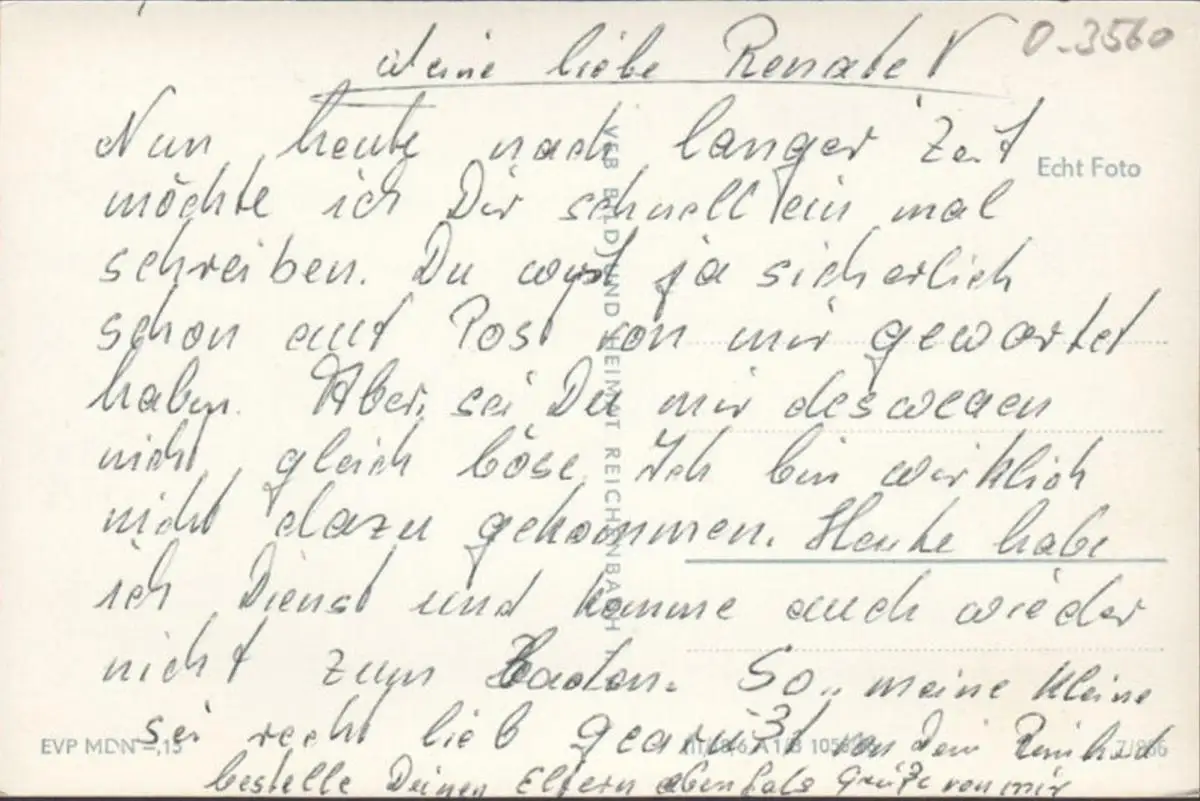 O-3560
Meine liebe Renate!
Nun heute nach langer Zeit
Echt Foto
möchte ich Dir schnell ein mal
schreiben. Du wirst ja sicherlich
schon auf Post von mir gewartet
haben. Aber, sei Du mir deswegen
nicht gleich böse. Ich bin wirklich
nicht dazu gekommen. Heute habe
ich Dienst und komme auch wieder
nicht zum Baden. So.. meine kleine
sei recht lieb gegrüßt von Dein
bestelle Deinen Eltern ebenfals Grüße von mir
VEB BILD UND HEIMAT REICHENBACH
EVP MDN -,15